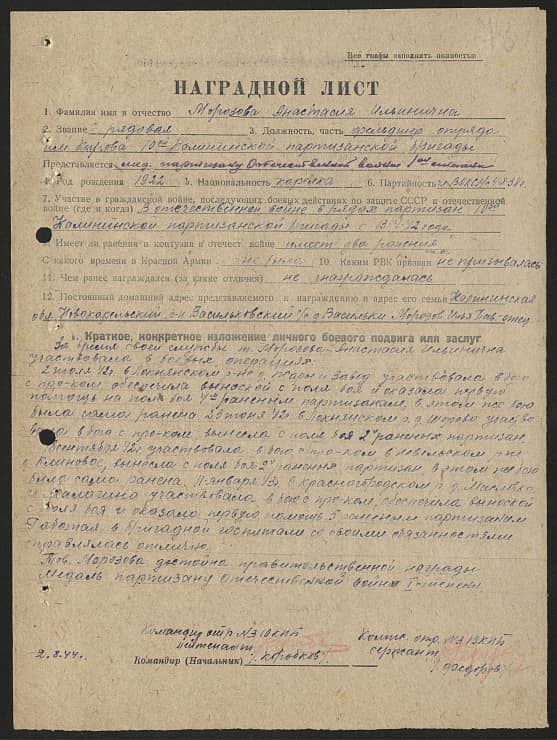 Все графы заполнять полностью
НАГРАДНОЙ ЛИСТ
1. Фамилия имя и отчество Морозова Анастасия Ильинична
2. Звание рядовая 3. Должность, часть отряда
10ой Калининской партизанской бригады
Представляется мед. партизану Отечественной войны 1ой степени
4. Год рождения 1922 5. Национальность карелка 6. Партийность
7. Участие в гражданской войне, последующих боевых действиях по защите СССР и отечественной
войне (где и когда) В отечественной войне в рядах партизан 10ой
Калининской партизанской бригады с
8. Имеет ли ранения и контузии в отечест. войне имеет два ранения
9. С какого времени в Красной Армии не была 10. Каким РВК призван не призывалась
11. Чем ранее награждался (за какие отличия) не награждалась
12. Постоянный домашний адрес представляемого к награждению и адрес его семьи Калининская
обл. Новокарельский р-н Васильковский с/с д. Васильки Морозов Илья Пав- отец
1. Краткое, конкретное изложение личного боевого подвига или заслуг
За время своей службы т. Морозова Анастасия Ильинична
участвовала в боевых операциях.
2 июля 42г. в Локнянском р-не д. и Завод участвовала в бою
с пр-ком, обеспечила выноской с поля боя и оказала первую
помощь на поле боя раненым партизанам, в этом же бою
была сама ранена. 29 июня 42г. в Локнянском р. д.
вала в бою с пр-ком, вынесла с поля боя 2х раненых партизан.
сентября 42г. участвовала в бою с пр-ком в Невельском р-не
д. Блиново, вынесла с поля боя 2х раненых партизан в этом же бою
была сама ранена. января 43г. в Красногородском р. д.
и участвовала в бою с пр-ком, обеспечила выноской
с поля боя и оказала первую помощь 5 раненым партизанам
Работая в бригадном госпитале со своими обязанностями
справлялась отлично.
Тов. Морозова достойна правительственной награды
медаль партизану Отечественной войны I степени
Командир отр №3 10 КПБ
лейтенант
Комис. отр. №3 10 КПБ
сержант
2.3.44г.
Командир (Начальник) / Коробков /
/ Федоров